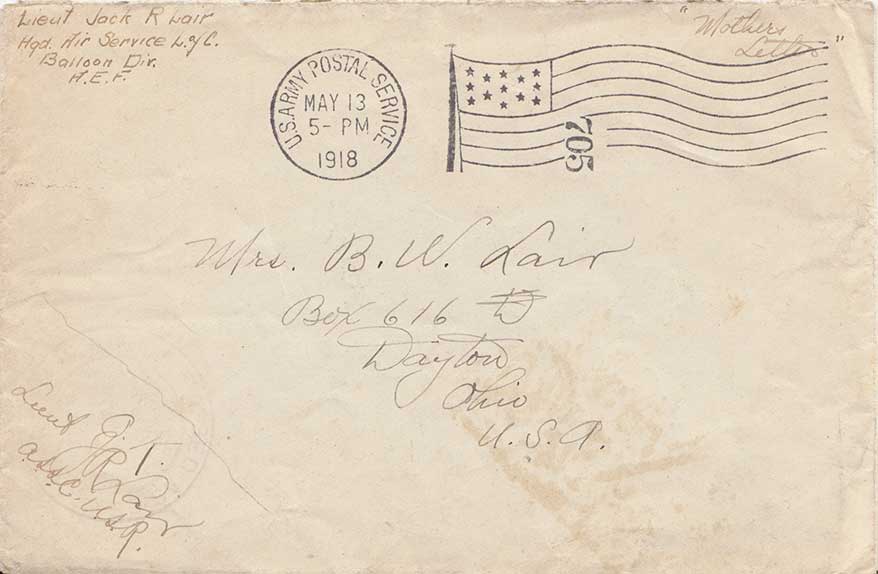 Lieut Jack R Lair
Hqd. Air Service L.of C.
Balloon Div.
A.E.F.
"Mothers
Letter"
U.S. ARMY POSTAL SERVICE
MAY 13
5- PM
1918
705
Mrs. B. W. Lair
Box 616
Dayton
Ohio
U. S. A.
Lieut J. R. Lair
A.S.S.C. U.S.R.